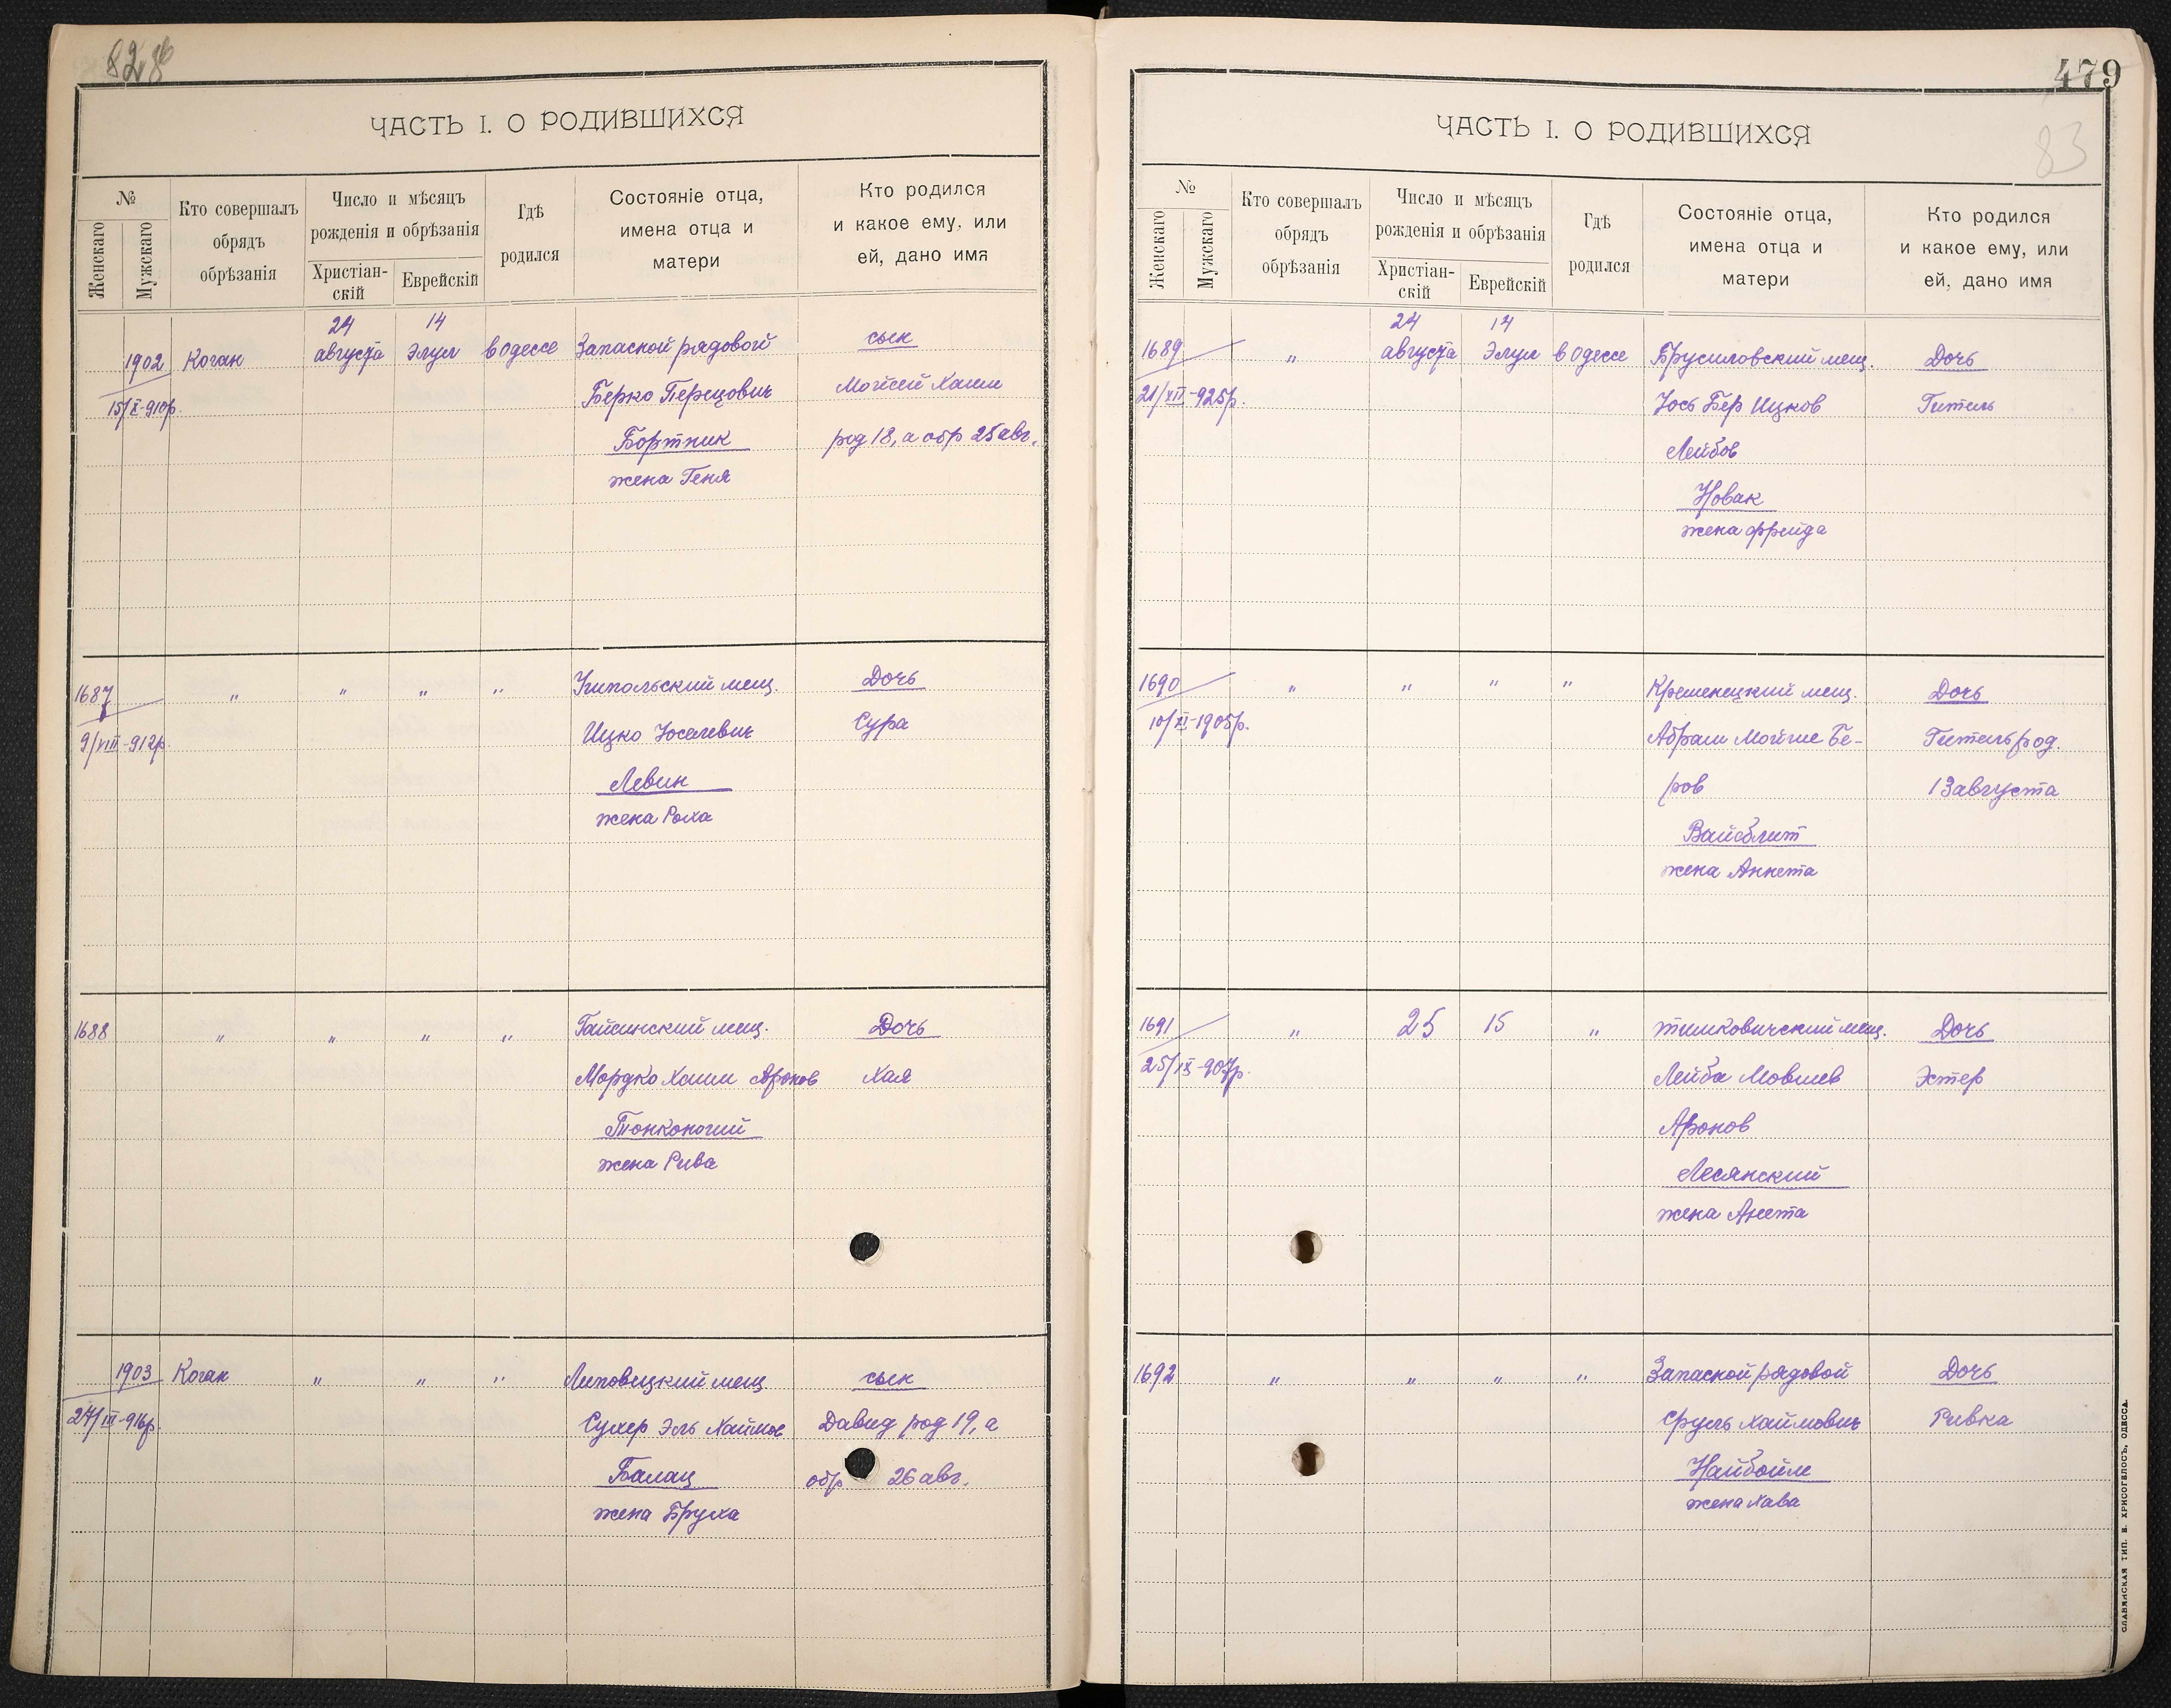 82 об
ЧАСТЬ I. О РОДИВШИХСЯ
№
Женскаго
Мужскаго
Кто совершалъ обрядъ обрѣзанія
Число и мѣсяцъ рожденія и обрѣзанія
Христіан-скій
Еврейскій
Гдѣ родился
Состояніе отца, имена отца и матери
Кто родился и какое ему, или ей, дано имя
1902 Коган 24 августа 14 Элул в Одессе Запасной рядовой сын
15/X-910р. Берко Перцович Мойсей Хаим
Бортник род 18, а обр 25 авг.
жена Геня
1687 " " " " мещ. Дочь
9/VIII-912р. Ицко Иоселевич Сура
Левин
жена Роха
1688 " " " " Гайсинский мещ. Дочь
Мордко Хаим Аронов Хая
Тонконогий
жена Рива
1903 Коган " " " Липовецкий мещ сын
27/III-916р. Сухер Эль Хаимов Давид род 19, а
Балац обр 26 авг.
жена Бруха
479
83
ЧАСТЬ I. О РОДИВШИХСЯ
№
Женскаго
Мужскаго
Кто совершалъ обрядъ обрѣзанія
Число и мѣсяцъ рожденія и обрѣзанія
Христіан-скій
Еврейскій
Гдѣ родился
Состояніе отца, имена отца и матери
Кто родился и какое ему, или ей, дано имя
1689 " 24 августа 14 Элул в Одессе Брусиловский мещ. Дочь
21/XII-925р. Иось Бер Ицков Гитель
Лейбов
Новак
жена Фрейда
1690 " " " " Кременецкий мещ. Дочь
10/XI-1905р. Абрам Мойше Бе- Гитель род.
ров 13 августа
Вайсблит
жена Аннета
1691 " 25 15 " Тимковичский мещ. Дочь
25/IX-907р. Лейба Мовшев Эстер
Аронов
Лесянский
жена Анета
1692 " " " " Запасной рядовой Дочь
Сруль Хаимович Ривка
Найбойм
жена Хава
СЛАВЯНСКАЯ ТИП. Н. ХРИСОГЕЛОСЪ, ОДЕССА.